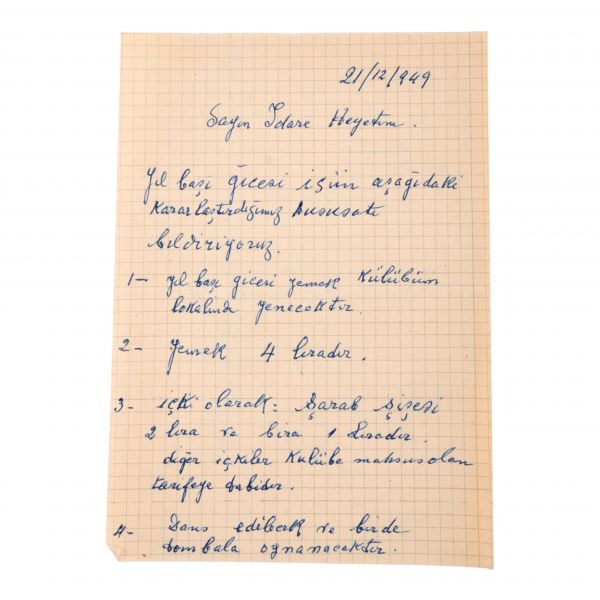 21/12/949
Sayın İdare Heyetine.
Yıl başı gicesi içün aşağıdaki
Kararlaştırdığımız hususatı
bildiriyoruz.
1- yıl başı gicesi yemek Külübün
lokalında yenecektır
2- Yemek 4 liradır.
3- içki olarak: Şarab Şişesi
2 lira ve bira 1 Liradır.
diğer içkiler Kulübe mahsus olan
tarifeye tabidır.
4- Dans edilecek ve birde
tombala oynanacaktır.